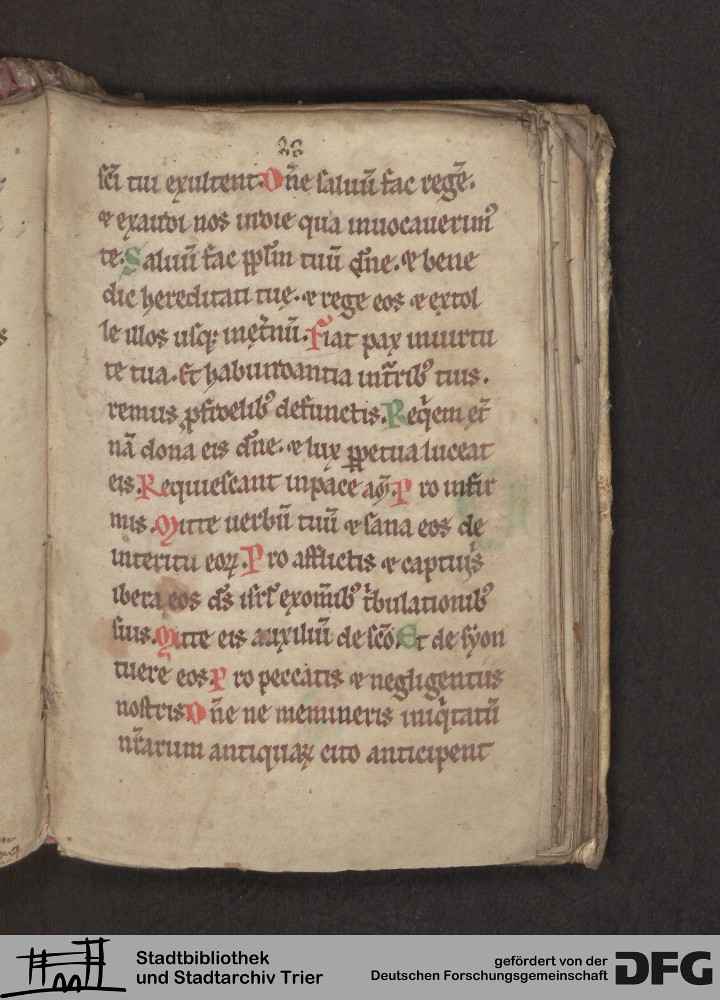 22
sc̄i tui exultent. Dn̄e saluū fac regē.
⁊ exaudi nos in die qua inuocauerim᷒
te. Saluū fac pp̄lm tuū dn̄e. ⁊ bene
dic hereditati tuę. ⁊ rege eos ⁊ extol
le illos usq; inet̄nū. Fiat pax inuirtu
te tua. Et habundantia int̄rib᷒ tuis.
remus ꝓ fidelib᷒ defunctis. Req̄em et̄
nā dona eis dn̄e. ⁊ lux ꝑpetua luceat
eis. Requiescant inpace am̄. Pro infir
mis. Mitte uerbū tuū ⁊ sana eos de
interitu eoꝝ. Pro afflictis ⁊ captiuis
ibera eos ds̄ isrl̄ exom̄ib᷒ t̄bulationib᷒
suis. Mitte eis auxiliū de sc̄o. Et de syon
tuere eos Pro peccatis ⁊ negligentiis
nostris Dn̄e ne memineris iniq̄tatū
nr̄arum antiquaꝝ cito anticipent
Stadtbibliothek
und Stadtarchiv Trier
gefördert von der
Deutschen Forschungsgemeinschaft
DFG